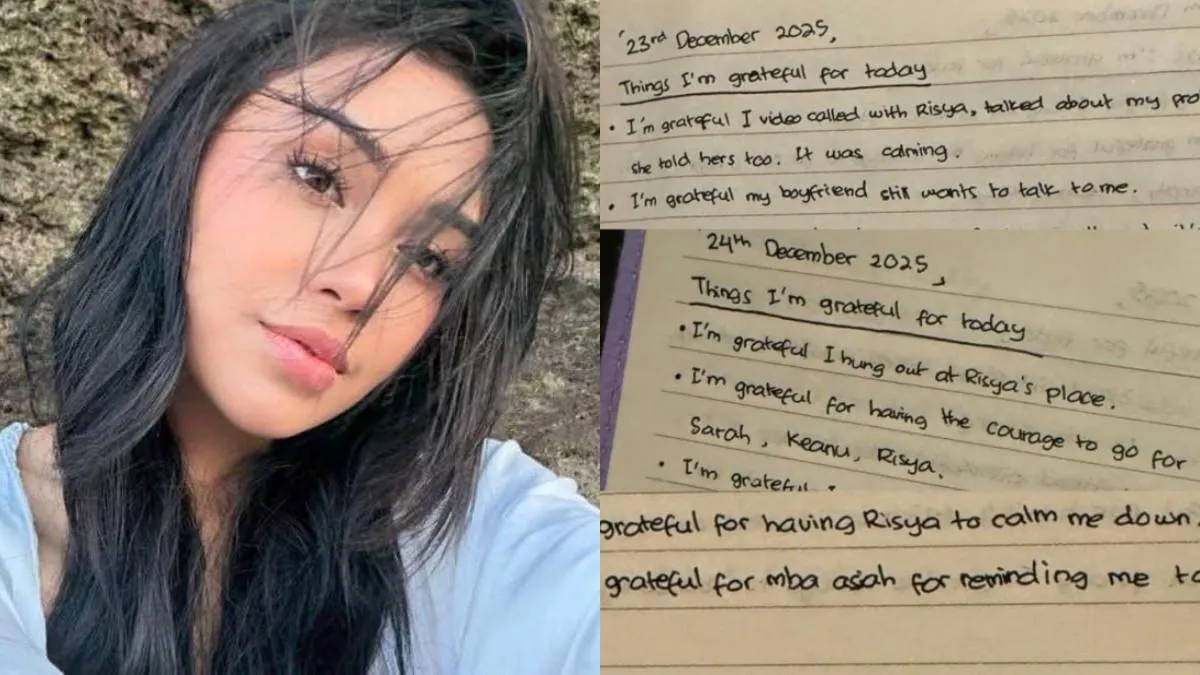 '23rd December 2025,
Things I'm grateful for today
• I'm grateful I video called with Risya, talked about my pro
she told hers too. It was calming.
• I'm grateful my boyfriend still wants to talk to me.
24th December 2025,
Things I'm grateful for today
• I'm grateful I hung out at Risya's place.
• I'm grateful for having the courage to go for
Sarah, Keanu, Risya.
• I'm grateful
grateful for having Risya to calm me down.
grateful for mba asiah for reminding me to